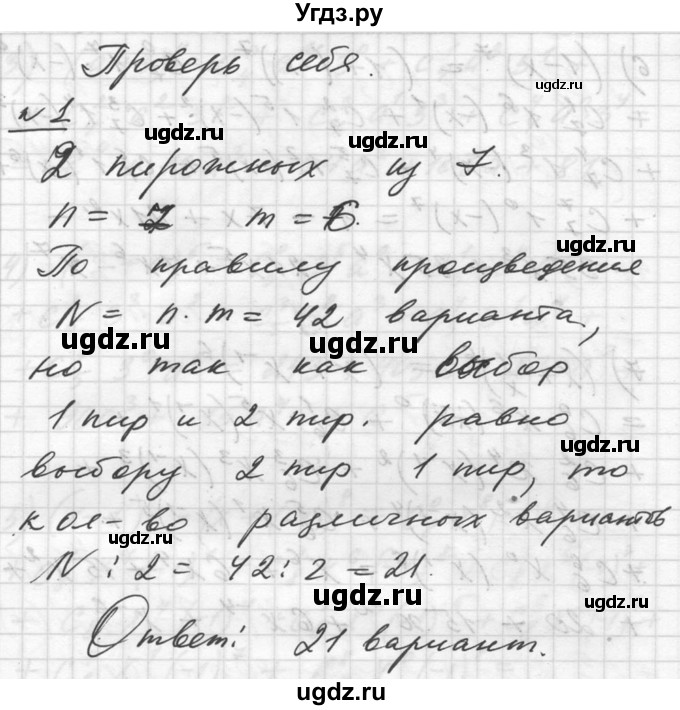 Угдз.ру
Проверь себя.
ugdz.ru
№1
ugdz.ru
ugdz.ru
2 пирожных из 7.
n = 7 m = 6.
По правилу произведения
N = n · m = 42 варианта,
ugdz.ru
ugdz.ru
но так как выбор
1 пир и 2 пир. равно
ugdz.ru
выбору 2 пир 1 пир, то
кол-во различных вариантов
ugdz.ru
N : 2 = 42 : 2 = 21.
ugdz.ru
ugdz.ru
Ответ: 21 вариант.
ugdz.ru
ugdz.ru